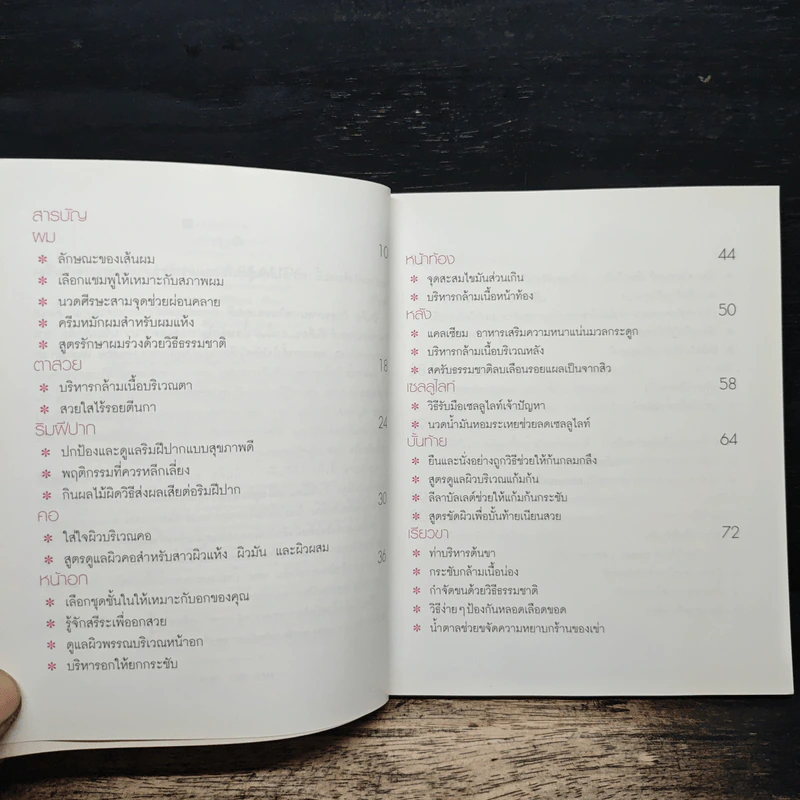 สารบัญ
ผม 10
✽ ลักษณะของเส้นผม
✽ เลือกแชมพูให้เหมาะกับสภาพผม
✽ นวดศีรษะสามจุดช่วยผ่อนคลาย
✽ ครีมหมักผมสำหรับผมแห้ง
✽ สูตรรักษาผมร่วงด้วยวิธีธรรมชาติ
ตาสวย 18
✽ บริหารกล้ามเนื้อบริเวณตา
✽ สวยใสไร้รอยตีนกา
ริมฝีปาก 24
✽ ปกป้องและดูแลริมฝีปากแบบสุขภาพดี
✽ พฤติกรรมที่ควรหลีกเลี่ยง
✽ กินผลไม้ผิดวิธีส่งผลเสียต่อริมฝีปาก
คอ 30
✽ ใส่ใจผิวบริเวณคอ
✽ สูตรดูแลผิวคอสำหรับสาวผิวแห้ง ผิวมัน และผิวผสม
หน้าอก 36
✽ เลือกชุดชั้นในให้เหมาะกับอกของคุณ
✽ รู้จักสรีระเพื่ออกสวย
✽ ดูแลผิวพรรณบริเวณหน้าอก
✽ บริหารอกให้ยกกระชับ
หน้าท้อง 44
✽ จุดสะสมไขมันส่วนเกิน
✽ บริหารกล้ามเนื้อหน้าท้อง
หลัง 50
✽ แคลเซียม อาหารเสริมความหนาแน่นมวลกระดูก
✽ บริหารกล้ามเนื้อบริเวณหลัง
✽ สครับธรรมชาติลบเลือนรอยแผลเป็นจากสิว
เซลลูไลท์ 58
✽ วิธีรับมือเซลลูไลท์เจ้าปัญหา
✽ นวดน้ำมันหอมระเหยช่วยลดเซลลูไลท์
บั้นท้าย 64
✽ ยืนและนั่งอย่างถูกวิธีช่วยให้ก้นกลมกลึง
✽ สูตรดูแลผิวบริเวณแก้มก้น
✽ ลีลาบัลเลต์ช่วยให้แก้มก้นกระชับ
✽ สูตรขัดผิวเพื่อบั้นท้ายเนียนสวย
เรียวขา 72
✽ ท่าบริหารต้นขา
✽ กระชับกล้ามเนื้อน่อง
✽ กำจัดขนด้วยวิธีธรรมชาติ
✽ วิธีง่ายๆ ป้องกันหลอดเลือดขอด
✽ น้ำตาลช่วยขจัดความหยาบกร้านของเข่า